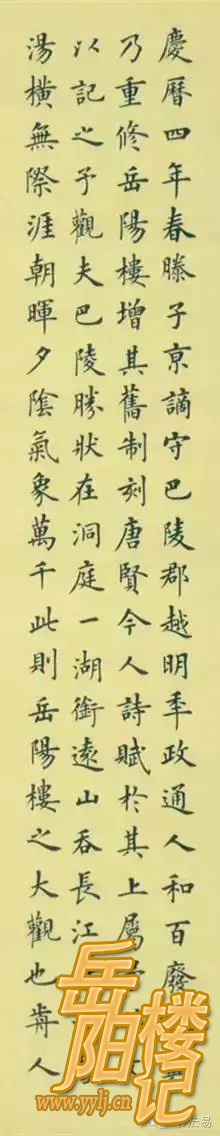 慶曆四年春滕子亰謫守巴陵郡越明秊政通人和百廢
乃重修岳陽樓增其舊制刻唐賢今人詩賦於其上屬
以記之予觀夫巴陵勝狀在洞庭一湖銜遠山吞長江
湯橫無際涯朝暉夕陰氣象萬千此則岳陽樓之大觀也歬人
岳阳楼记
www.yylj.cn
法易